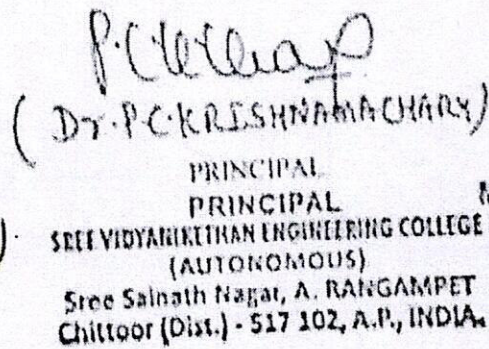 (Dr. P.C.KRISHNAMACHARY)
PRINCIPAL
PRINCIPAL
SREE VIDYANIKETHAN ENGINEERING COLLEGE
(AUTONOMOUS)
Sree Sainath Nagar, A. RANGAMPET
Chittoor (Dist.) - 517 102, A.P., INDIA.